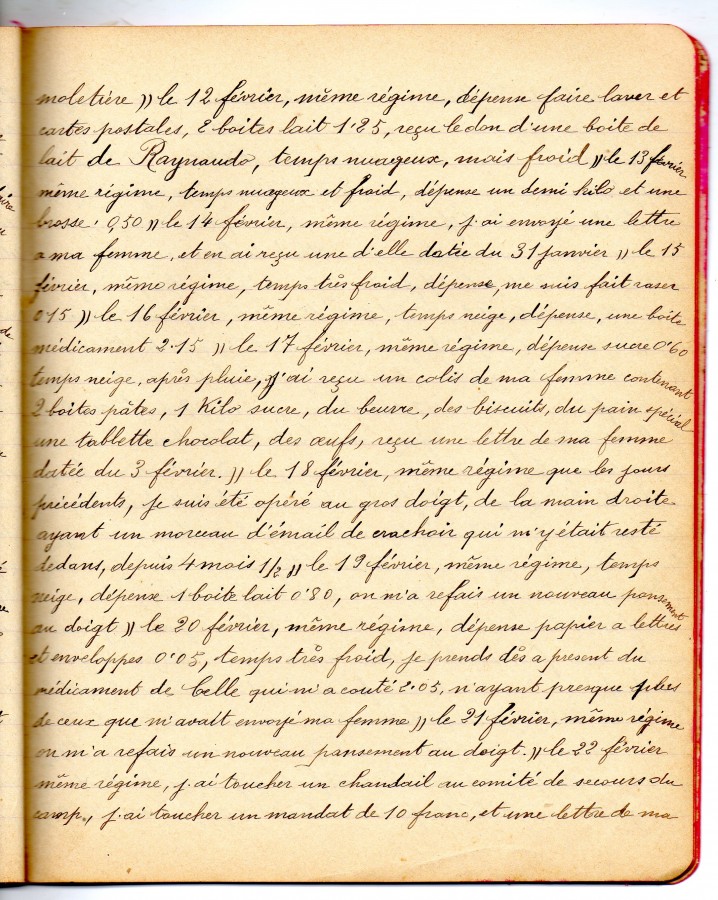 moletière )) le 12 février, même régime, dépense faire laver et
cartes postales, 2 boites lait 1'25, reçu le don d'une boite de
lait de Raynaudo, temps nuageux, mais froid )) le 13 février
même régime, temps nuageux et froid, dépense un demi kilo et une
brosse, 0,50 )) le 14 février, même régime, j.ai envoyé une lettre
a ma femme, et en ai reçu une d'elle datée du 31 janvier )) le 15
février, même régime, temps très froid, dépense, me suis fait raser
0'15 )) le 16 février, même régime, temps neige, dépense, une boite
médicament 2.15 )) le 17 février, même régime, dépense sucre 0'60
temps neige, après pluie, j'ai reçu un colis de ma femme contenant
2 boites pâtes, 1 Kilo sucre, du beurre, des biscuits, du pain spécial
une tablette chocolat, des œufs, reçu une lettre de ma femme
datée du 3 février. )) le 18 février, même régime que les jours
précédents, je suis été opéré au gros doigt, de la main droite
ayant un morceau d'émail de crachoir qui m'y était resté
dedans, depuis 4 mois 1/2 )) le 19 février, même régime, temps
neige, dépense 1 boite lait 0'80, on m'a refais un nouveau pansement
au doigt )) le 20 février, même régime, dépense papier a lettres
et enveloppes 0'05, temps très froid, je prends dès a present du
médicament de Celle qui m'a couté 2.05, n'ayant presque plus
de ceux que m'avait envoyé ma femme )) le 21 février, même régime
on m'a refais un nouveau pansement au doigt. )) le 22 février
même régime, j.ai toucher un chandail au comité de secours du
camp., j.ai toucher un mandat de 10 franc, et une lettre de ma